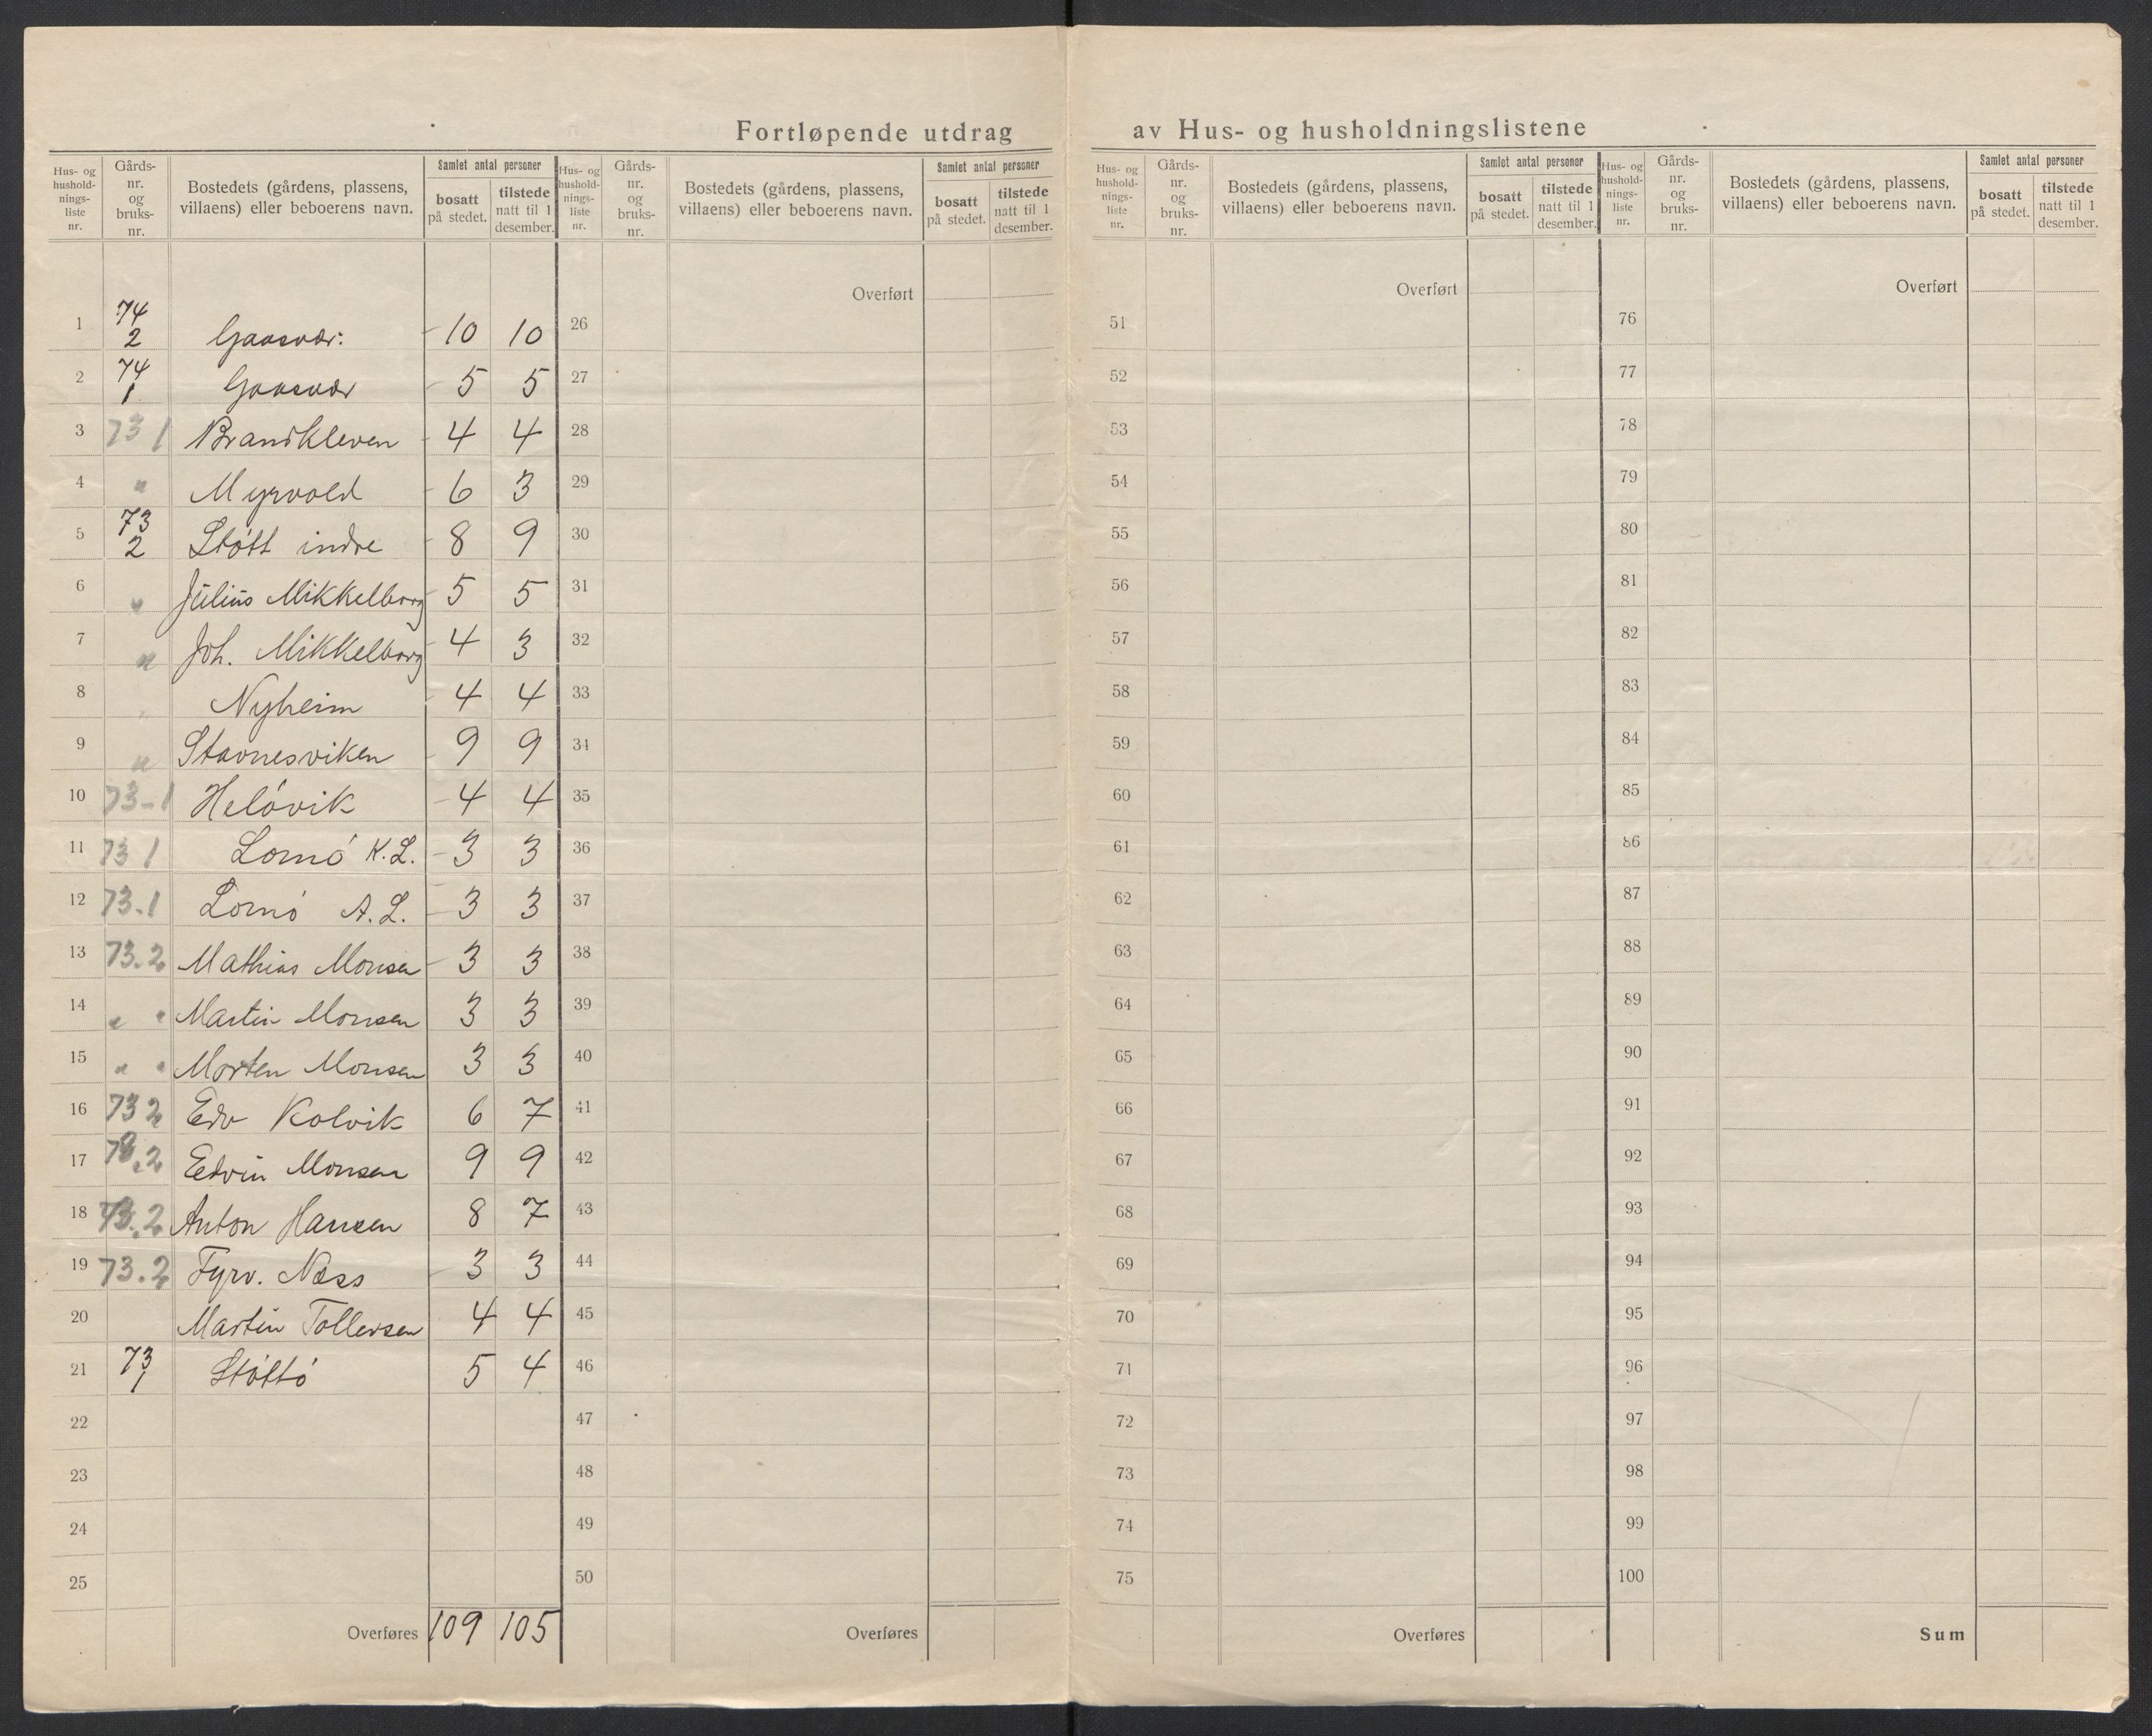 Fortløpende utdrag av Hus- og husholdningslistene
Hus- og hushold-nings-liste nr. | Gårds-nr. og bruks-nr. | Bostedets (gårdens, plassens, villaens) eller beboerens navn. | Samlet antal personer | bosatt på stedet. | tilstede natt til 1 desember.
Hus- og hushold-nings-liste nr. | Gårds-nr. og bruks-nr. | Bostedets (gårdens, plassens, villaens) eller beboerens navn. | Samlet antal personer | bosatt på stedet. | tilstede natt til 1 desember.
Hus- og hushold-nings-liste nr. | Gårds-nr. og bruks-nr. | Bostedets (gårdens, plassens, villaens) eller beboerens navn. | Samlet antal personer | bosatt på stedet. | tilstede natt til 1 desember.
Hus- og hushold-nings-liste nr. | Gårds-nr. og bruks-nr. | Bostedets (gårdens, plassens, villaens) eller beboerens navn. | Samlet antal personer | bosatt på stedet. | tilstede natt til 1 desember.
1 74 2 Gaasvær: 10 10
2 74 1 Gaasvær 5 5
3 73 1 Brandkleven 4 4
4 " Myrvold 6 3
5 73 2 Støtt indre 8 9
6 " Julius Mikkelborg 5 5
7 " Joh. Mikkelborg 4 3
8 " Nyheim 4 4
9 " Stavnesviken 9 9
10 73-1 Heløvik 4 4
11 73 1 Lomø K.L. 3 3
12 73.1 Lomø A.L. 3 3
13 73.2 Mathias Monsen 3 3
14 " " Martin Monsen 3 3
15 " " Morten Monsen 3 3
16 73 2 Edv Kolvik 6 7
17 73.2 Edvin Monsen 9 9
18 73.2 Anton Hansen 8 7
19 73.2 Fyrv. Næss 3 3
20 Martin Tollersen 4 4
21 73 1 Støttø 5 4
22
23
24
25
Overføres 109 105
Overført
26
27
28
29
30
31
32
33
34
35
36
37
38
39
40
41
42
43
44
45
46
47
48
49
50
Overføres
Overført
51
52
53
54
55
56
57
58
59
60
61
62
63
64
65
66
67
68
69
70
71
72
73
74
75
Overføres
Overført
76
77
78
79
80
81
82
83
84
85
86
87
88
89
90
91
92
93
94
95
96
97
98
99
100
Sum